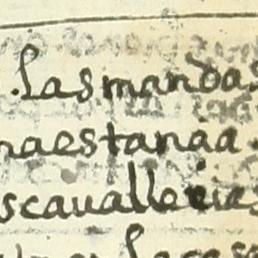 .Las mandas
naestanaa.
scauallerias